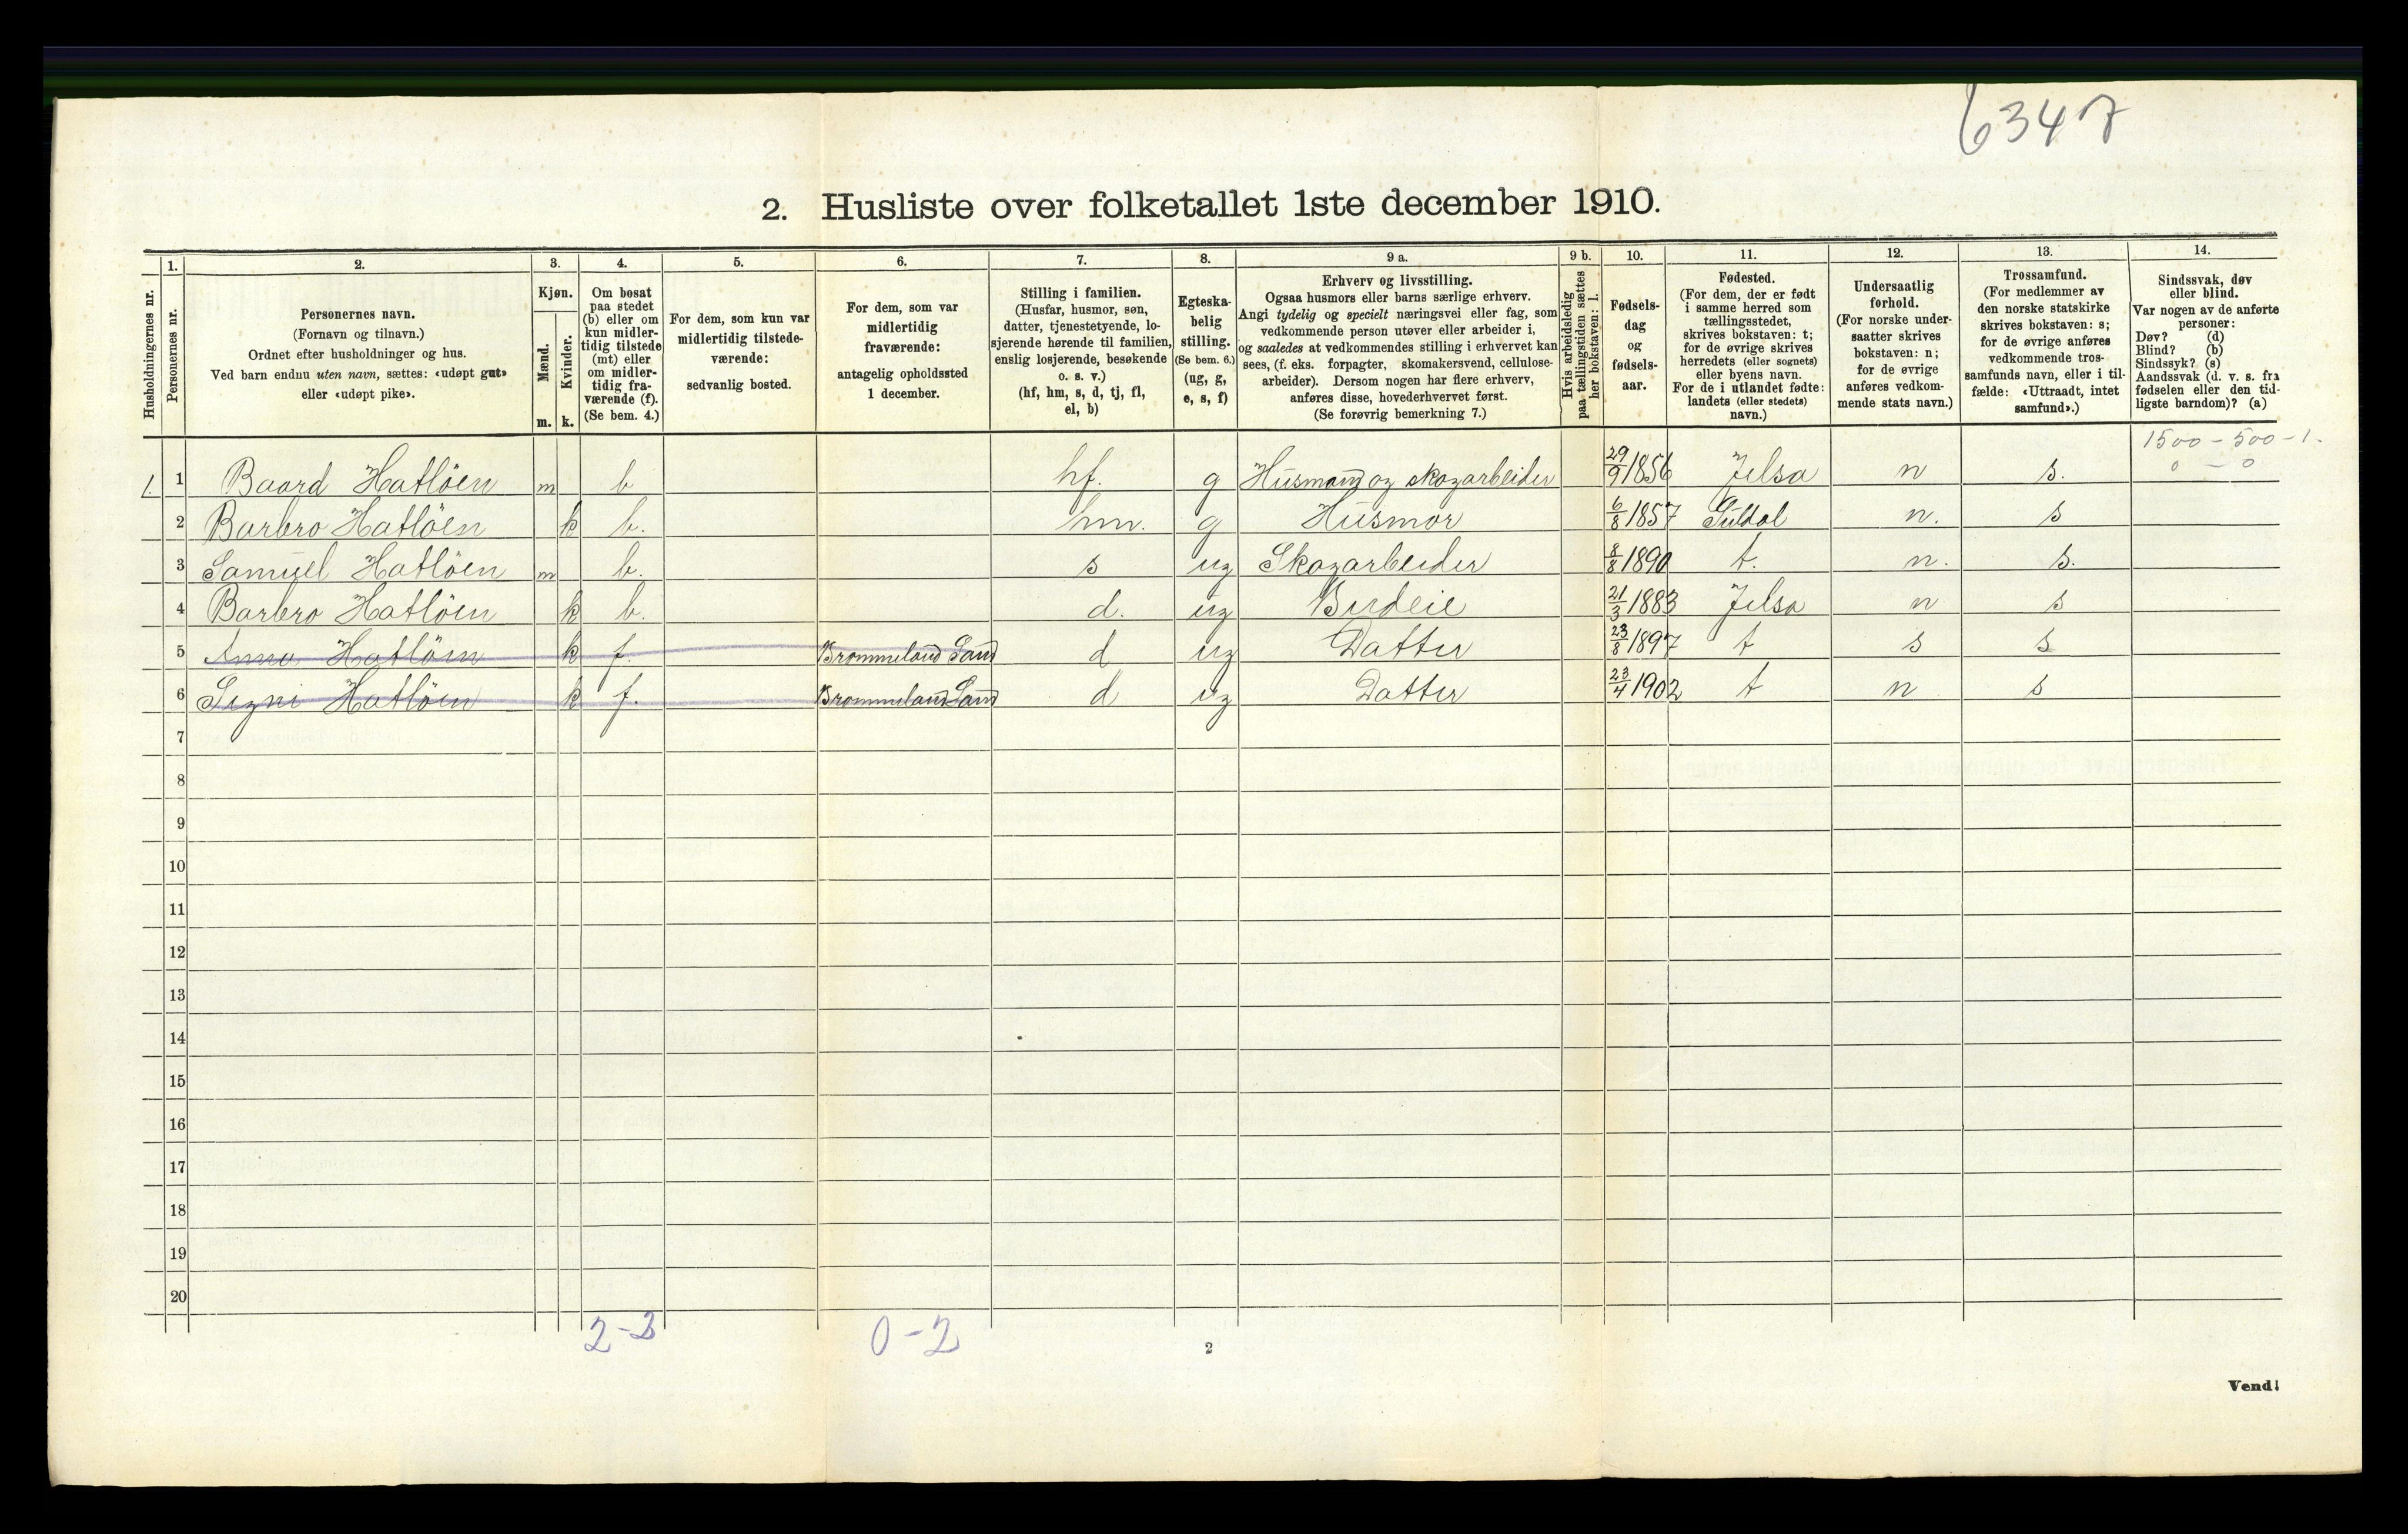 6347
2. Husliste over folketallet 1ste december 1910.
Husholdningernes nr.
1.
Personernes nr.
2.
Personernes navn.
(Fornavn og tilnavn.)
Ordnet efter husholdninger og hus.
Ved barn endnu uten navn, sættes: «udøpt gut»
eller «udøpt pike».
3.
Kjøn.
Mænd.
Kvinder.
m.
k.
4.
Om bosat
paa stedet
(b) eller om
kun midler-
tidig tilstede
(mt) eller
om midler-
tidig fra-
værende (f).
(Se bem. 4.)
5.
For dem, som kun var
midlertidig tilstede-
værende:
sedvanlig bosted.
6.
For dem, som var
midlertidig
fraværende:
antagelig opholdssted
1 december.
7.
Stilling i familien.
(Husfar, husmor, søn,
datter, tjenestetyende, lo-
sjerende hørende til familien,
enslig losjerende, besøkende
o. s. v.)
(hf, hm, s, d, tj, fl,
el, b)
8.
Egteska-
belig
stilling.
(Se bem. 6.)
(ug, g,
e, s, f)
9 a.
Erhverv og livsstilling.
Ogsaa husmors eller barns særlige erhverv.
Angi tydelig og specielt næringsvei eller fag, som
vedkommende person utøver eller arbeider i,
og saaledes at vedkommendes stilling i erhvervet kan
sees, (f. eks. forpagter, skomakersvend, cellulose-
arbeider). Dersom nogen har flere erhverv,
anføres disse, hovederhvervet først.
(Se forøvrig bemerkning 7.)
9 b.
Hvis arbeidsledig
paa tællingstiden sættes
her bokstaven: l.
10.
Fødsels-
dag
og
fødsels-
aar.
11.
Fødested.
(For dem, der er født
i samme herred som
tællingsstedet,
skrives bokstaven: t;
for de øvrige skrives
herredets (eller sognets)
eller byens navn.
For de i utlandet fødte:
landets (eller stedets)
navn.)
12.
Undersaatlig
forhold.
(For norske under-
saatter skrives
bokstaven: n;
for de øvrige
anføres vedkom-
mende stats navn.)
13.
Trossamfund.
(For medlemmer av
den norske statskirke
skrives bokstaven: s;
for de øvrige anføres
vedkommende tros-
samfunds navn, eller i til-
fælde: «Uttraadt, intet
samfund».)
14.
Sindssvak, døv
eller blind.
Var nogen av de anførte
personer:
Døv? (d)
Blind? (b)
Sindssyk? (s)
Aandssvak (d. v. s. fra
fødselen eller den tid-
ligste barndom)? (a)
1500 - 500 - 1.
0 - 0
1. 1 Baard Hatlöen m b hf. g Husmand og skogarbeider 29/9 1856 Jelsa n s.
2 Barbro Hatlöen k b. hm. g Husmor 6/8 1857 Suldal n. s
3 Samuel Hatlöen m b. s ug Skogarbeider 8/8 1890 t. n. s.
4 Barbro Hatlöen k b. d. ug Budeie 21/3 1883 Jelsa n s
5 Anna Hatlöen k f. Brommeland Sand d ug Datter 23/8 1897 t s s
6 Signi Hatlöen k f. Brommeland Sand d ug Datter 23/4 1902 t n s
7
8
9
10
11
12
13
14
15
16
17
18
19
20
2-2
0-2
2
Vend!